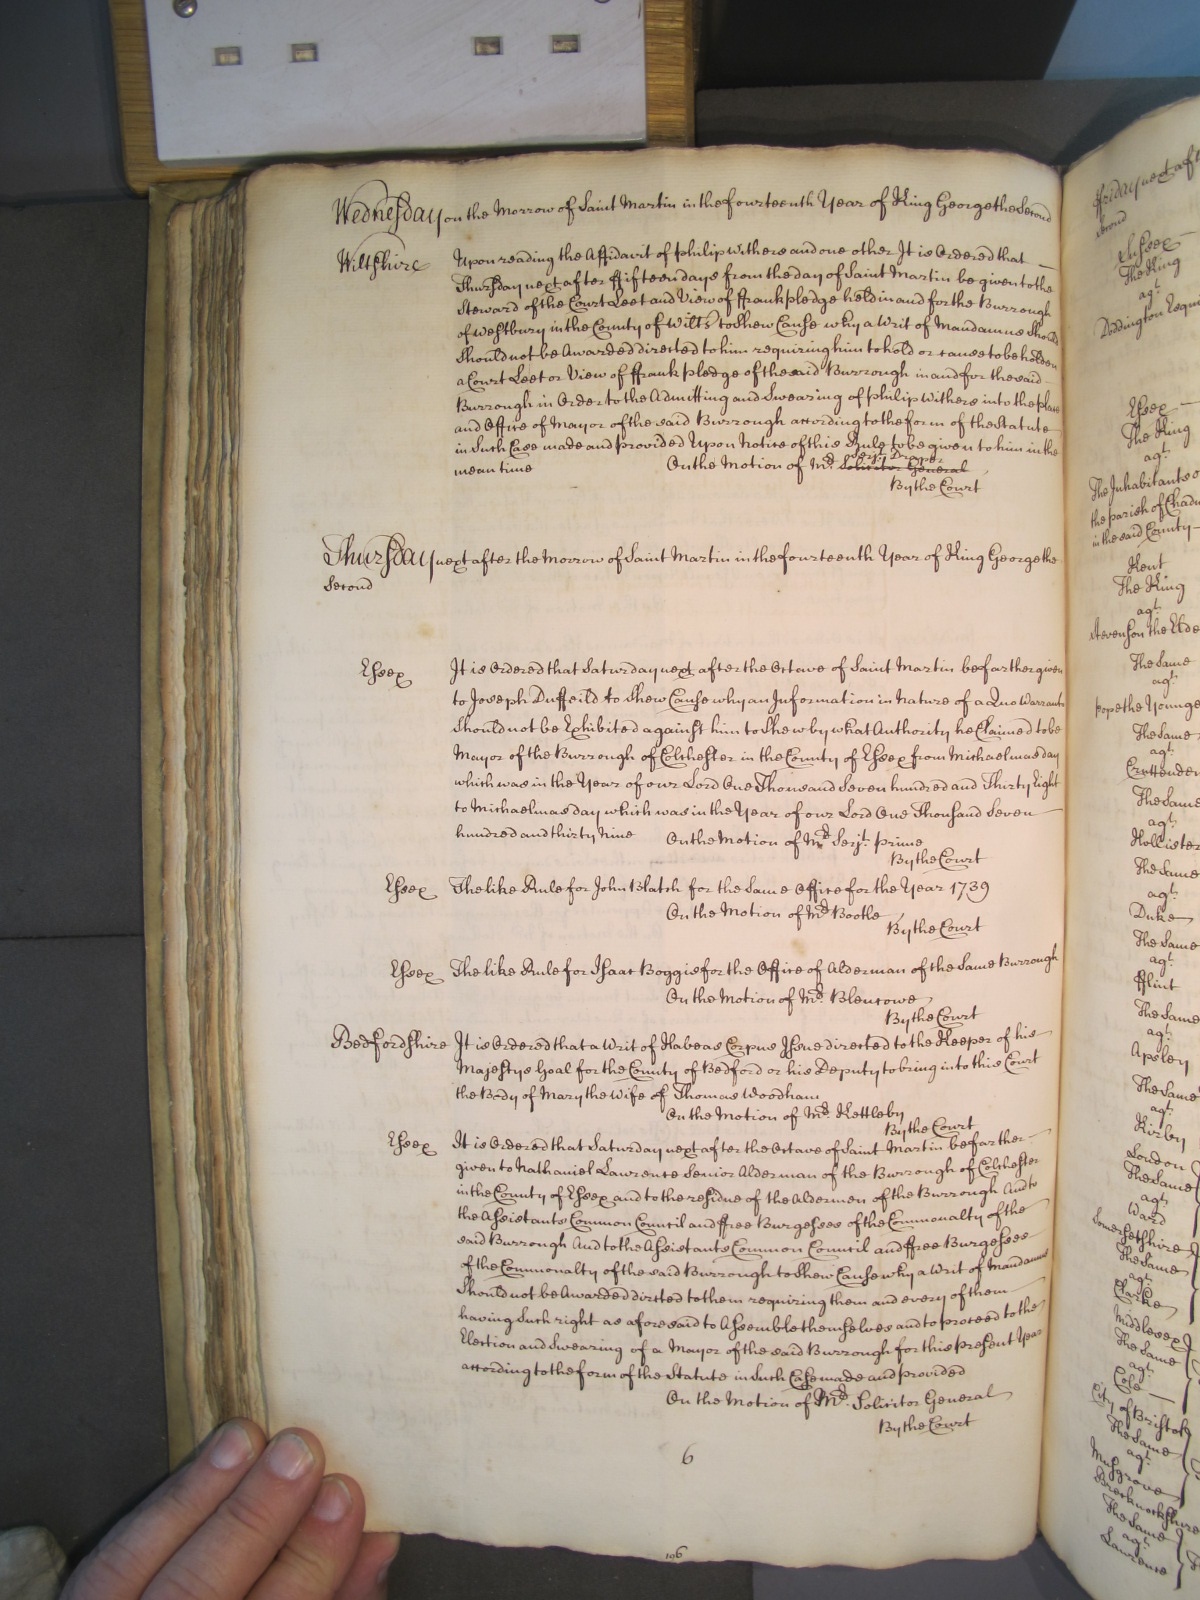 Wednesday on the Morrow of Saint Martin in the fourteenth Year of King George the Second
Wiltshire Upon reading the Affidavit of Philip Withers and one other It is Ordered that
Thursday next after ffifteen days from the day of Saint Martin be given to the
Steward of the Court Leet and View of ffrankpledge held in and for the Burrough
of Westbury in the County of Wilts to Shew Cause why a Writ of Mandamus Should
Should not be Awarded directed to him requiring him to hold or cause to be holden
a Court Leet or View of ffrank pledge of the said Burrough in and for the said
Burrough in Order to the Admitting and Swearing of Philip Withers into the place
and Office of Mayor of the said Burrough according to the form of the Statute
in Such Case made and provided Upon Notice of this Rule to be given to him in the
mean time On the Motion of Mr. Serjt. Draper Solicitor General
By the Court
Thursday next after the Morrow of Saint Martin in the fourteenth Year of King George the
Second
Essex It is Ordered that Saturday next after the Octave of Saint Martin be farther given
to Joseph Duffeild to Shew Cause why an Information in Nature of a Quo Warranto
Should not be Exhibited against him to Shew by what Authority he Claimed to be
Mayor of the Burrough of Colchester in the County of Essex from Michaelmas day
which was in the Year of our Lord One Thousand Seven hundred and Thirty Eight
to Michaelmas day which was in the Year of our Lord One Thousand Seven
hundred and thirty Nine On the Motion of Mr. Serjt. Prime
By the Court
Essex The like Rule for John Blatch for the Same Office for the Year 1739
On the Motion of Mr. Bootle
By the Court
Essex The like Rule for Isaac Boggis for the Office of Alderman of the Same Burrough
On the Motion of Mr. Blencowe
By the Court
Bedfordshire It is Ordered that a Writ of Habeas Corpus Issue directed to the Keeper of his
Majestys Goal for the County of Bedford or his Deputy to bring into this Court
the Body of Mary the Wife of Thomas Woodham
On the Motion of Mr. Kettleby
By the Court
Essex It is Ordered that Saturday next after the Octave of Saint Martin be farther
given to Nathaniel Lawrence Senior Alderman of the Burrough of Colchester
in the County of Essex and to the residue of the Aldermen of the Burrough And to
the Assistants Common Council and ffree Burgesses of the Commonalty of the
said Burrough And to the Assistants Common Council and ffree Burgesses
of the Commonalty of the said Burrough to Shew Cause why a Writ of Mandamus
Should not be Awarded dirrted to them requiring them and every of them
having Such right as aforesaid to Assemble themselves and to proceed to the
Election and Swearing of a Mayor of the said Burrough for this present Year
according to the form of the Statute in Such Case made and provided
On the Motion of Mr. Solicitor General
By the Court
6
196
Friday next aft
Second
Sussex
The King
agt.
Doddington
Essex
The King
agt.
The Inhabitants o
the parish of
in the said County
Kent
The King
agt.
Stevenson the Elde
The Same
agt.
Pope the Younge
The Same
agt.
Cruttenden
The Same
agt.
Hollister
The Same
agt.
Duke
The Same
agt.
fflint
The Same
agt.
Apsley
The Same
agt.
Kirby
London
The Same
agt.
Ward
Somersetshire
The Same
agt.
Clarke
Middlesex
The Same
agt.
Cole
City of Bristol
The Same
agt.
Musgrove
Brecknockshire
The Same
agt.
Lawrence